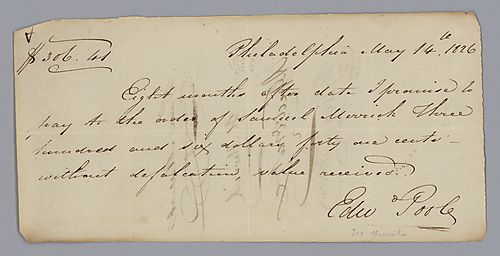 $306.41
Philadelphia May 14th 1826
Eight months after date I promise to
pay to the order of Samuel Merrick Three
hundred and six dollars forty one cents –
without defalcation, value received.
Edwd Poole